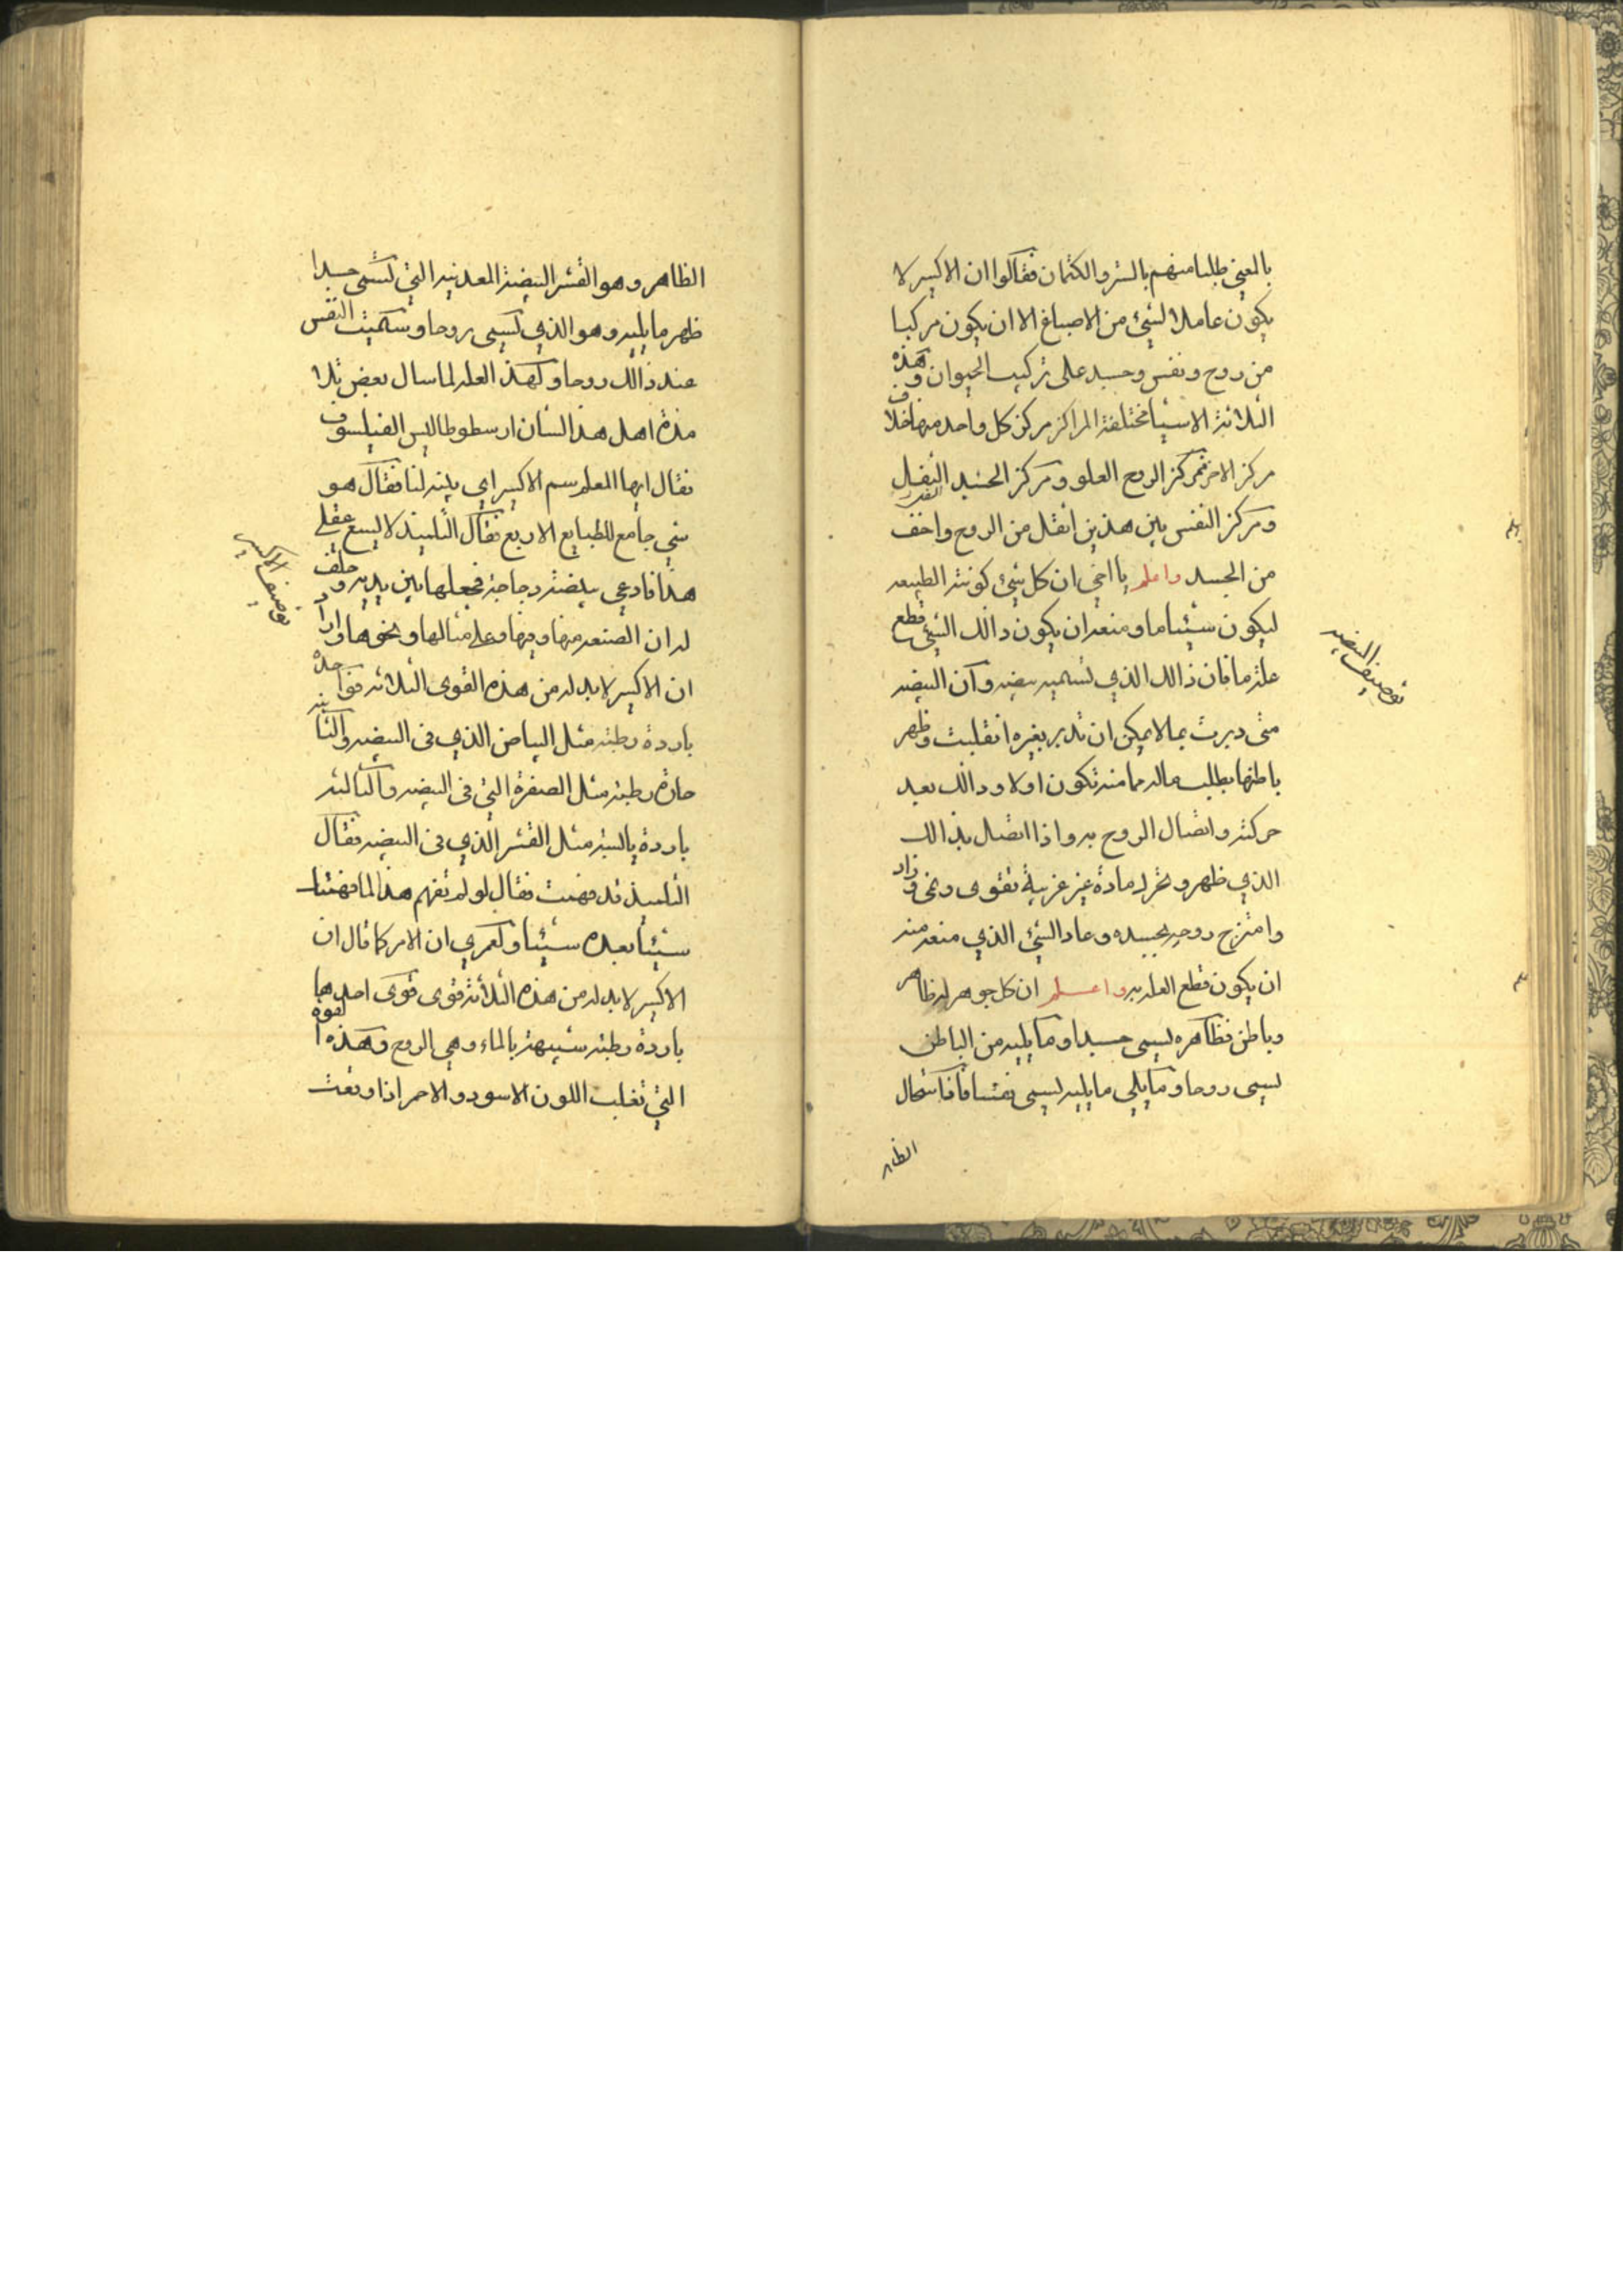 بالمعنى طلبا منهم بالستر والكتمان فقالوا ان الاكسير لا
يكون عاملا لشئ من الاصباغ الا ان يكون مركبا
من روح ونفس وجسد على تركيب الحيوان وهذه
الثلاثة الاشيا مختلفة المراكز مركز كل واحد منها خلاف
مركز الاخر فمركز الروح العلو ومركز الجسد الثفل
ومركز النفس بين هذين اثقل من الروح واخف
من الجسد واعلم يا اخي ان كل شئ كونته الطبيعه
ليكون شيئا ما ومنعه ان يكون ذالك الشئ قطع
علة ما فان ذالك الذي نسميه بيضه وان البيضه
متى دبرت بما لا يمكن ان تدبر بغيره انقلبت وظهر
باطنها بطلب عالم ما منه تكون اولا وذالك بعد
حركته واتصال الروح به واذا اتصل بذالك
الذي ظهر و مادة غير غريبة تقوى ونمى وزاد
وامتزج روحه بجسده وعاد الشئ الذي منعه منه
ان يكون قطع العله به واعلم ان كل جوهر له ظاهر
وباطن فظاهره يسمى جسدا وما يليه من الباطن
يسمى روحا وما يلي ما يليه يسمى نفسا فاذا استحال
الظاهر
توصيف البيضه
الظاهر وهو القشر البيضة المعدنيه التي تسمى جسدا
ظهر ما يليه وهو الذي يسمى روحا وسميت النفس
عند ذالك روحا ولهذه العله لما سال بعض تلا
مذة اهل هذا الشأن ارسطوطاليس الفيلسوف
فقال ايها المعلم سم الاكسير اي بينه لنا فقال هو
شي جامع للطبايع الاربع فقال التلميذ لا يسع عقلي
هذا فادعي بيضة دجاجة فجعلها بين يديه وحلف
له ان الصنعه منها وفيها وعلى مثالها ونحوها واراد
ان الاكسير لا بد له من هذه القوى الثلاثه فواحدة
باردة رطبة مثل البياض الذي في البيضه والثانيه
حارة رطبة مثل الصفرة التي في البيضه والثالثه
باردة يابسة مثل القشر الذي في البيضه فقال
التلميذ قد فهمت فقال لو لم تفهم هذا لما فهمتنا
شيئا بعده شيئا ولعمري ان الامر كما قال ان
الاكسير لا بد له من هذه الثلاثة قوى قوى احدها
باردة رطبة شبيهة بالماء وهي الروح وهذه القوة
التي تغلب اللون الاسود والاحمر اذا وقعت
توصيف الاكسير